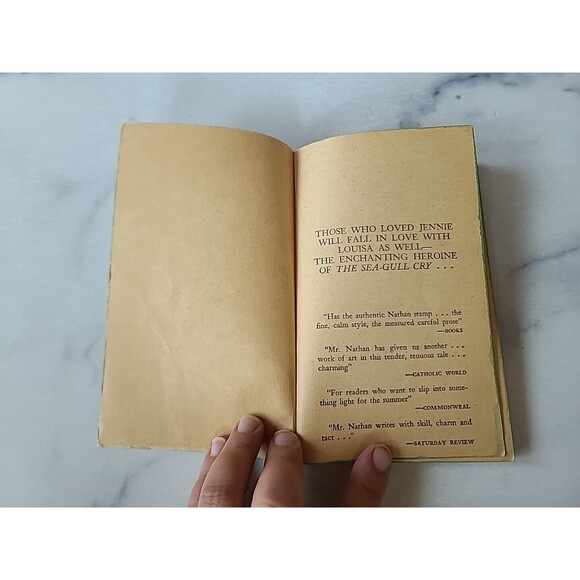 THOSE WHO LOVED JENNIE
WILL FALL IN LOVE WITH
LOUISA AS WELL—
THE ENCHANTING HEROINE
OF THE SEA-GULL CRY . . .
"Has the authentic Nathan stamp . . . the
fine, calm style, the measured careful prose"
—BOOKS
"Mr. Nathan has given us another . . .
work of art in this tender, tenuous tale . . .
charming"
—CATHOLIC WORLD
"For readers who want to slip into some-
thing light for the summer"
—COMMONWEAL
"Mr. Nathan writes with skill, charm and
tact . . ."
—SATURDAY REVIEW